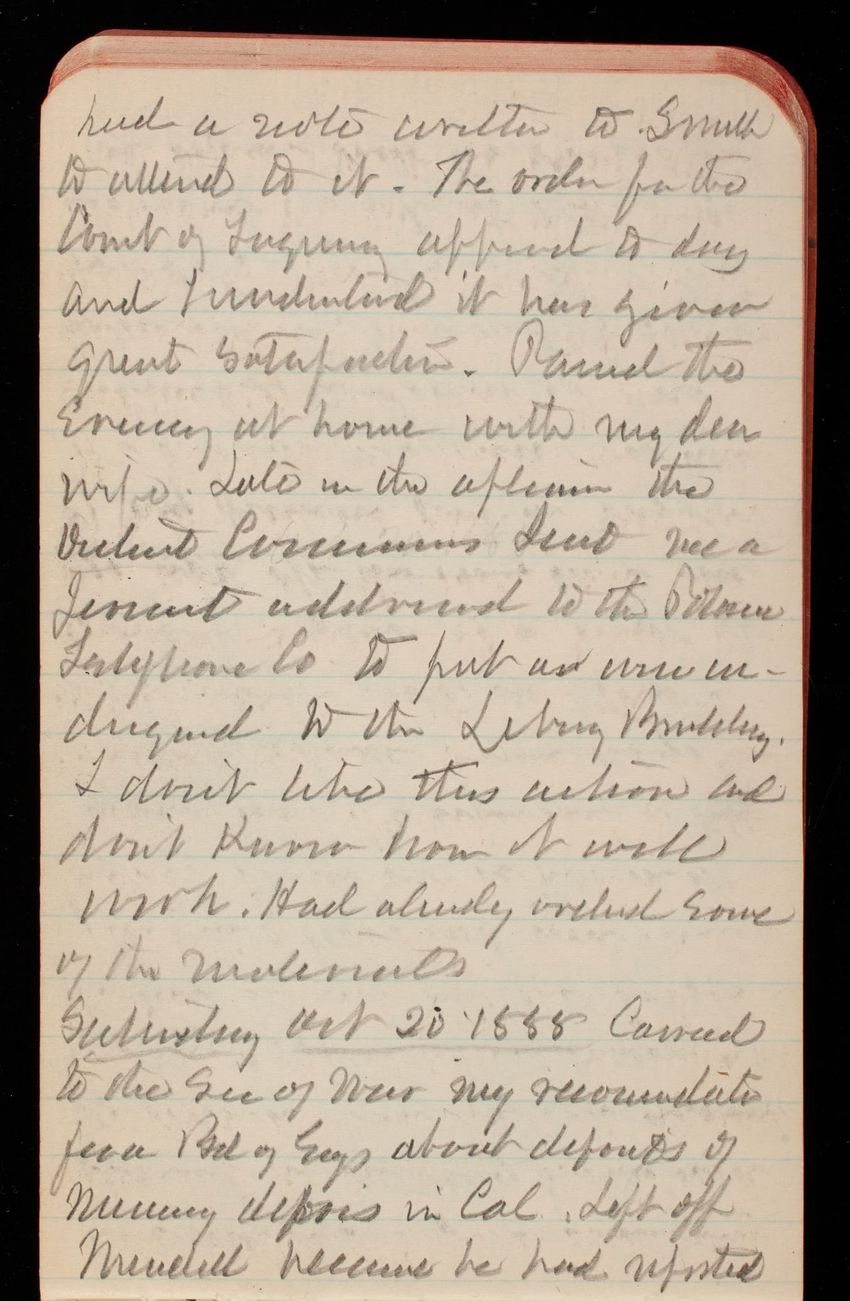 had a note written to Smith
to attend to it. The order for the
Court of Inquiry appeared to day
and I understand it has given
great satisfaction. Passed the
Evening at home with my dear
wife. Late in the afternoon the
District Commrs Sent me a
permit addressed to the
Telephone Co to put a wire in
to the Library Building.
I don't like this action and
don't Know how it will
work. Had already ordered some
of the materials
Saturday Oct 20 1888 Carried
to the Sec of War my recomendatn
for a Bd of Engs about deposits of
Mining debris in Cal. Left off
Mendell because he had reported